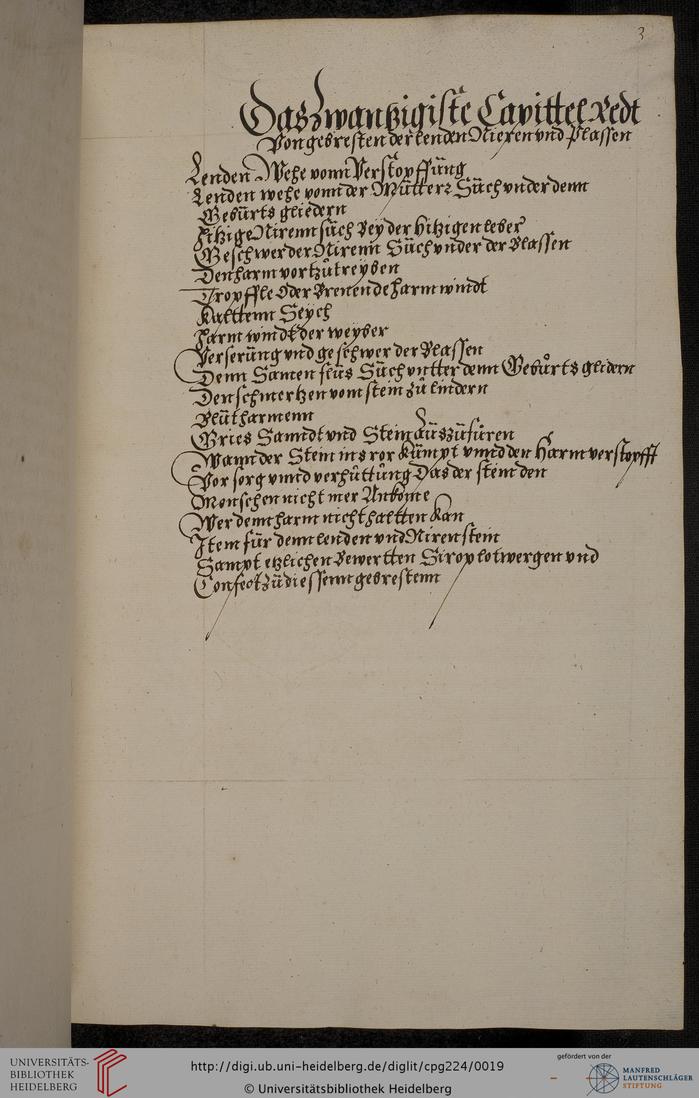 3
Das Zwantzigiste Capittel Redt
Von gebresten der lenden Nieren vnd Plassen
Lenden Wehe vonn Verstopffüng
Lenden wehe vonn der Mütterr Süch vnder denn
Gebürts gliedern
Hitzige Nirenn süch Bey der hitzigen leber
Geschwer der Nirenn Süch vnder der Blassen
Den harm vort zü treyben
Tropffle Oder Brenende harm windt
Kalttenn Seych
Harm windt der weyber
Verserüng vnd geschwer der Blassen
Denn Samen flüs Süch vntter denn Gebürts glidern
Den schmertzen vom stein zü lindern
Blüt harmenn
Gries Sanndt vnd Stein Aüs zü füren
Wann der Stein ins ror kümpt vnnd den Harm verstopfft
Vor sorg vnnd verhüttüng Das der stein den
Menschen nicht mer Ankome
Wer denn harm nicht haltten kan
Item für denn lenden vnd Niren stein
Sampt etzlichen Bewertten Sirop lotwergen vnd
Confect zü diessenn gebrestenn
UNIVERSITÄTS-
BIBLIOTHEK
HEIDELBERG
http://digi.ub.uni-heidelberg.de/diglit/cpg224/0019
© Universitätsbibliothek Heidelberg
gefördert von der
MANFRED
LAUTENSCHLÄGER
STIFTUNG